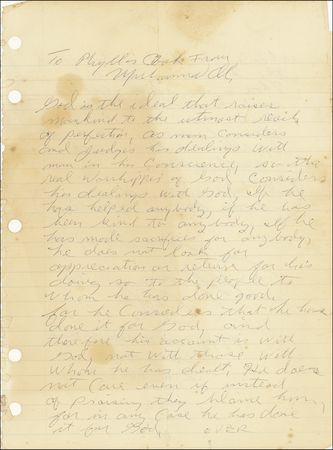 To Phyllis From
Muhammad Ali
God is the ideal that raises
mankind to the utmost reach
of perfection, as man considers
and judges his dealings with
man in his Conscience, so the
real worshipper of God, Considers
his dealings with God, If he
has helped anybody, if he has
been kind to anybody, If he
has made sacrifices for anybody,
he does not look for
appreciation or return for his
doing so to the people to
whom he has done good,
for he Considers that he has
done it for God, and
therefore his account is with
God, not with those with
whom he has dealt, He does
not Care even if instead
of praising they blame him,
for in any Case he has done
it for God, OVER